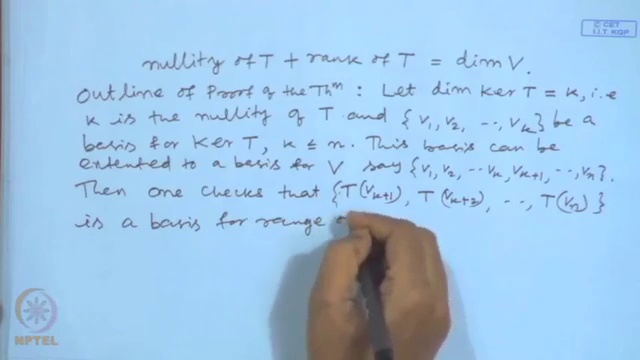 © CET
I.I.T. KGP
nullity of T + rank of T = dim V.
Outline of Proof of the Thm : Let dim Ker T = k, i.e
k is the nullity of T and {v1, v2, ..., vk} be a
basis for Ker T, k ≤ n. This basis can be
extented to a basis for V say {v1, v2, ... vk, vk+1, ..., vn}.
Then one checks that {T(vk+1), T(vk+2), ..., T(vn)}
is a basis for range
NPTEL